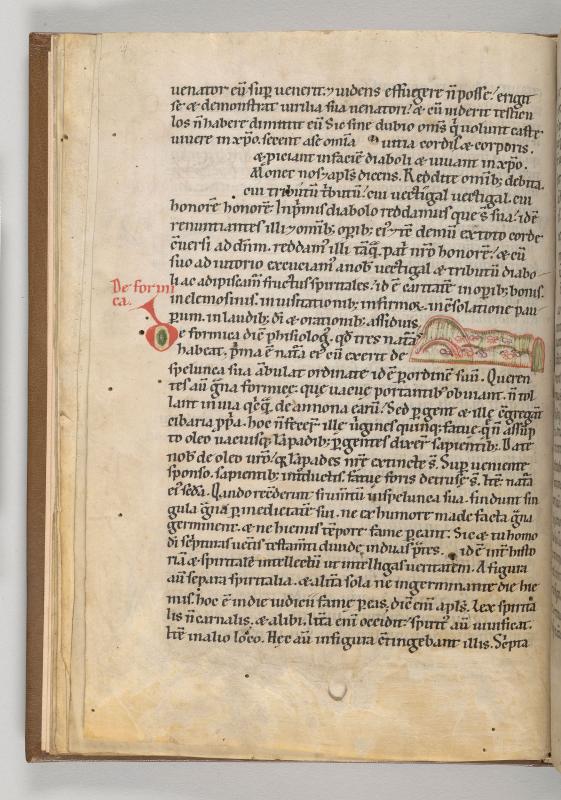 uenator eū sup̄ uenerit. ⁊ uidens effugere n̄ posse. erigit
se & demonstrat uirilia sua uenatori. & cū uiderit testicu
los n̄ habere dimittit eū Sic sine dubio om̄s q̇ uolunt caste
uiuere in xp̄o. secent a se omnia uitia cordis & corporis.
& piciant in faciē diaboli & uiuant in xp̄o.
Monet nos ⁊ apl̄s dicens. Reddite omīb; debita.
cui tributū t̄butū. cui uectigal uectigal. cui
honorē honorē. Inp̄mis diabolo reddamus que s̄ sua. id ē
renuntiantes illi ⁊ omīb; opīb; ei
ūersi ad dn̄m. reddam᷒ illi tāq̄ pat̄ nr̄o honorē. & cū
suo adiutorio execuciam᷒ a nob᷒ uectigal & tributū diabo
li ac adipiscam̄ fructus spiritales. id ē caritatē in opīb; bonis.
in elemosinis. in uisitationib; infirmor̄. in ɔ̄solatione pau
perum. in laudib; dī & orationib; assiduis
De formi
ca.
De formica dic̄ phisiolog᷒. qd̄ tres nat̄as
habeat. p̄ma ē nat̄a ei᷒ cū exerit de
spelunca sua ābulat ordinate id ē p ordinē suū. Queren
tes aū ḡna formice. que uacue portantib᷒ obuiant. n̄ tol
lant in uia q̇cq̄ de annona earū. Sed p̄gent & ille ɔ̄gregāt
cibaria p̄p̄a. hoc n̄ fecer̄ ille ūgines quinq; fatue. q̄ n̄ assūp̄
to oleo uacuisq; lāpadib; p̄gentes dixer̄ sapientib;. Date
nob᷒ de oleo ur̄o. q̄ lāpades nr̄e extincte s̄. Sup̄ueniente
sponso. sapientib; introductis. fatue foris detruse s̄. Itē nat̄a
ei᷒ sc̄da. Quando recōderint frumtū in spelunca sua. findunt sin
gula ḡna p medietatē sui. ne ex humore madefacta ḡna
germinent. & ne hiemis tēpore fame pereant. Sic & tu homo
dī sc̄pturas uetis testam̄ti diuide induas p̄tes. id ē int̄ histo
riā & spiritalē intellectū ut intelligas ueritatem. A figura
aū separa spiritalia. & a littera sola ne ingerminante die hie
mis. hoc ē in die iudicii fame peas. dic̄ enī apl̄s. Lex spirita
lis n̄ carnalis. & alibi. litt̄a enī occidit. spirit᷒ aū uiuificat.
Itē in alio loco. Hec aū in figura ɔ̄tingebant illis. Sc̄pta